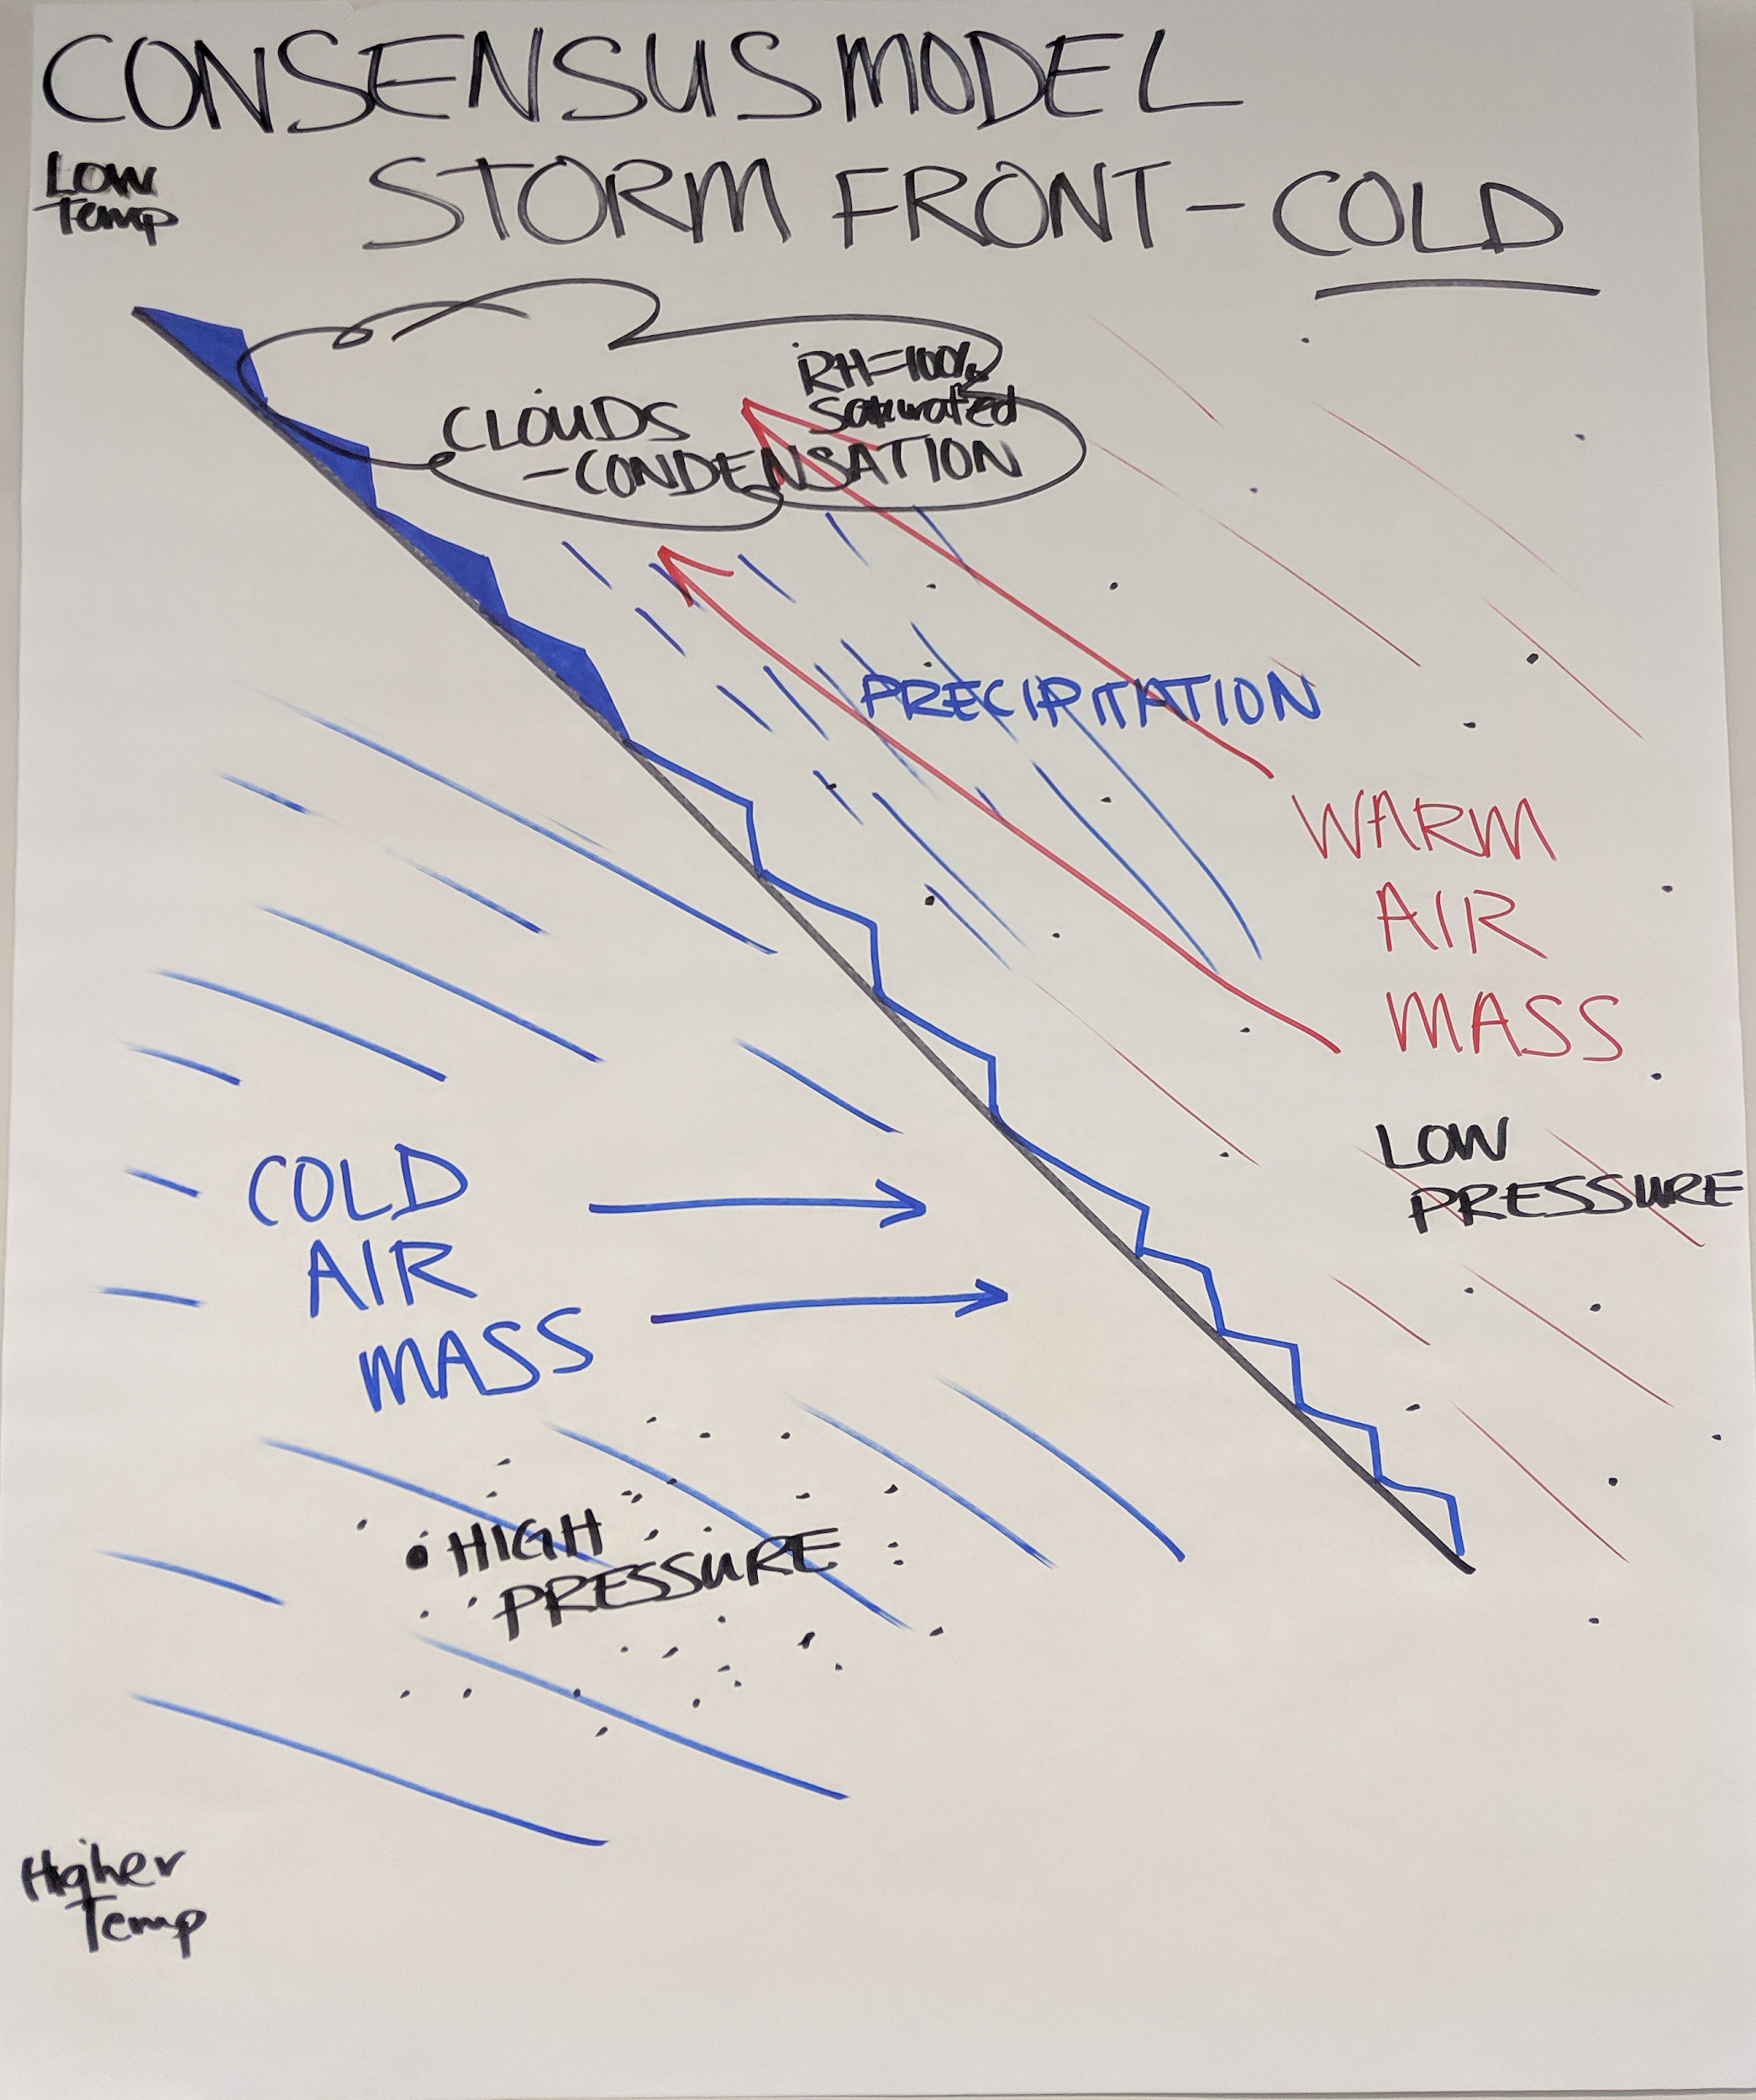 CONSENSUS MODEL
LOW
Temp
STORM FRONT - COLD
RH=100%
Saturated
CLOUDS
- CONDENSATION
PRECIPITATION
WARM
AIR
MASS
LOW
PRESSURE
COLD
AIR
MASS
• HIGH
PRESSURE
Higher
Temp